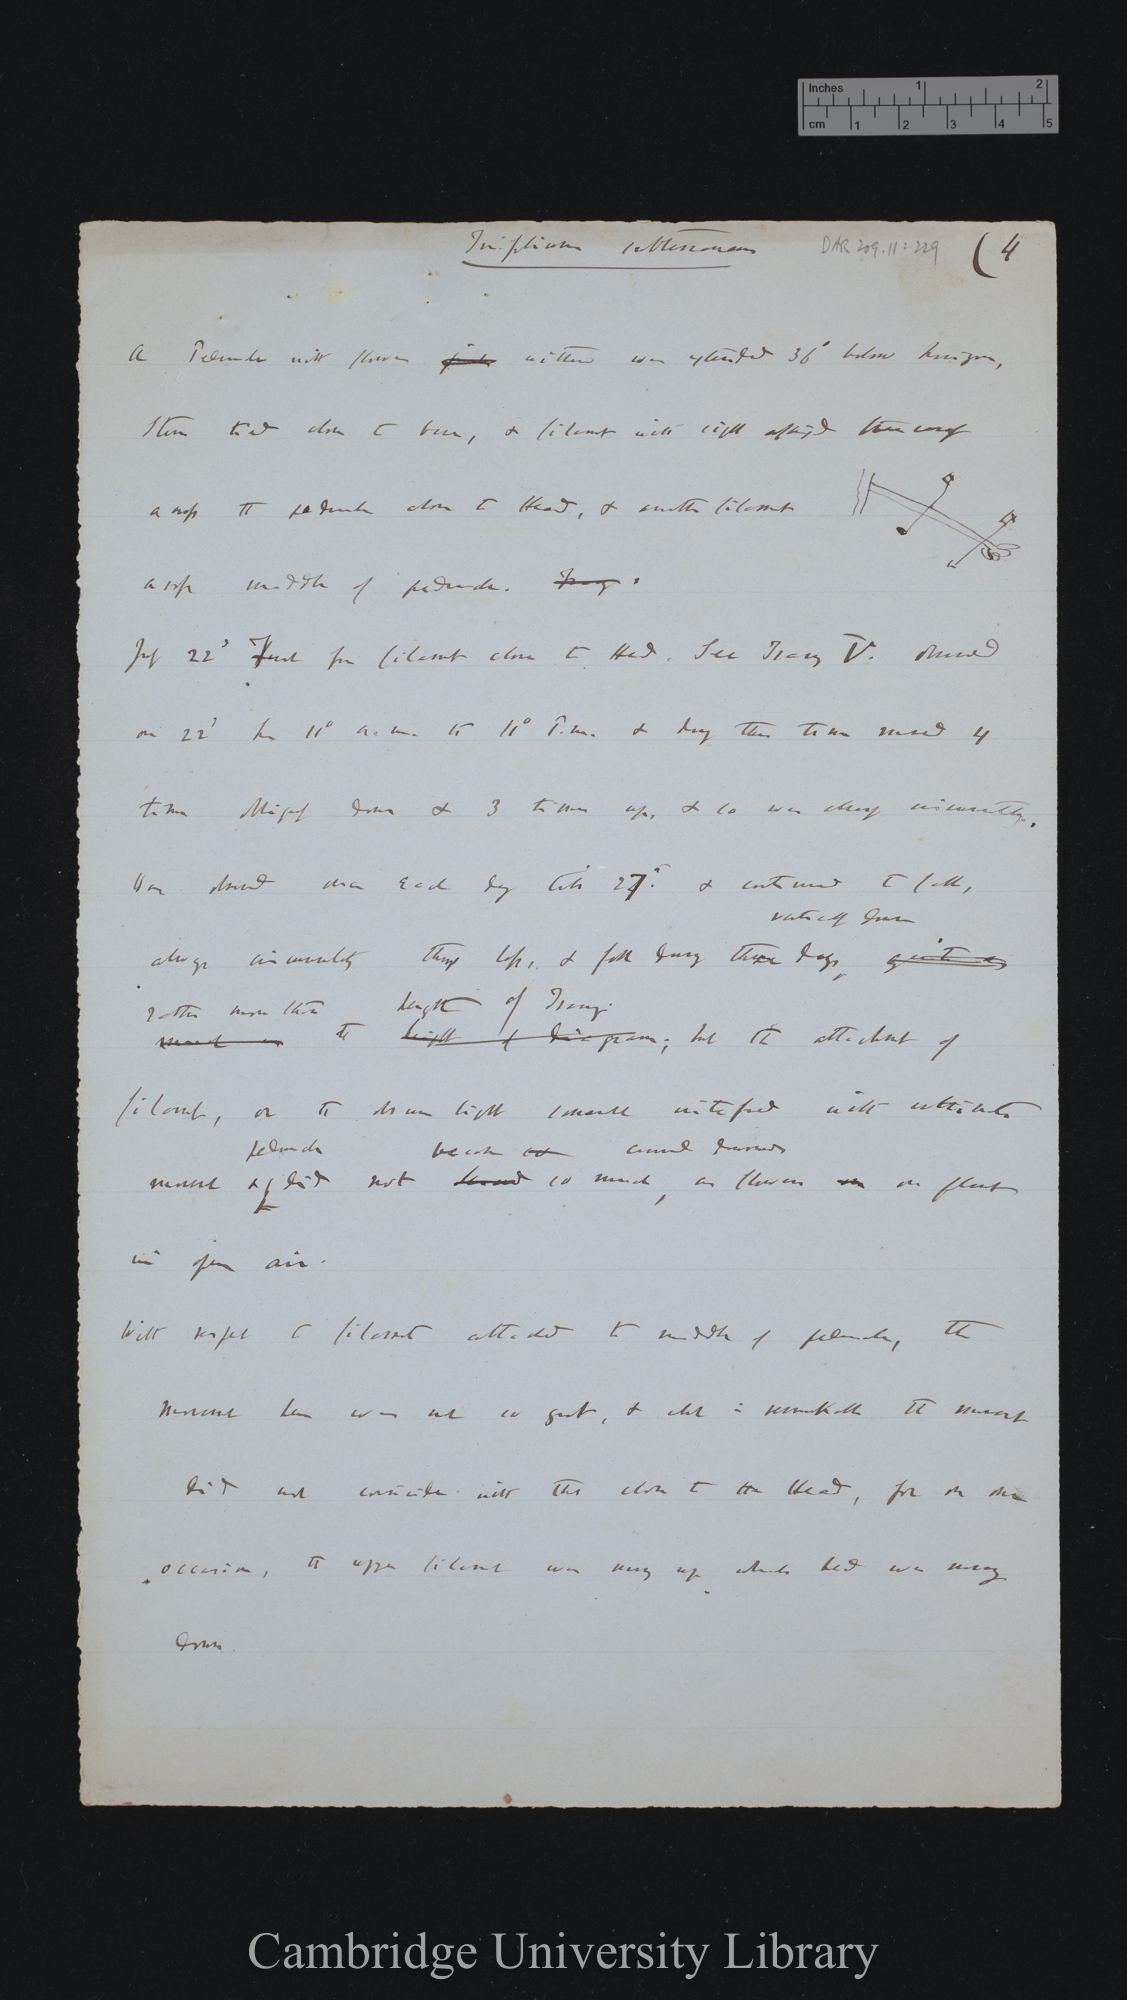 Inches 1 2
cm 1 2 3 4 5
Trifolium subterraneum DAR 209.11:229 (4
A Peduncle with flowers withered was extended 36° below horizon,
Stem tied close to base, & filament with
across the peduncle close to Head, & another filament
across middle of peduncle. Tracing.
July 22d First for filament close to Head. See Tracing V. observed
on 22d from 11° a.m. to 11° P.m. & during this time moved 4
times down & 3 times up, & so was always circumnutating.
Was observed each day till 27th & continued to fall,
vertically down
always circumnutating though less, & fell during these days,
rather more than length of Tracing.
the height of diagram; but the attachment of
filament, or the interfered with
peduncle became curved downwards
movement & did not so much, as flowers on plant
in open air.
With respect to filament attached to middle of peduncle, the
movement here was not so great, & what is remarkable the movement
did not coincide with that close to the Head, for on one
occasion, the upper filament was moving up whilst head was moving
down.
Cambridge University Library